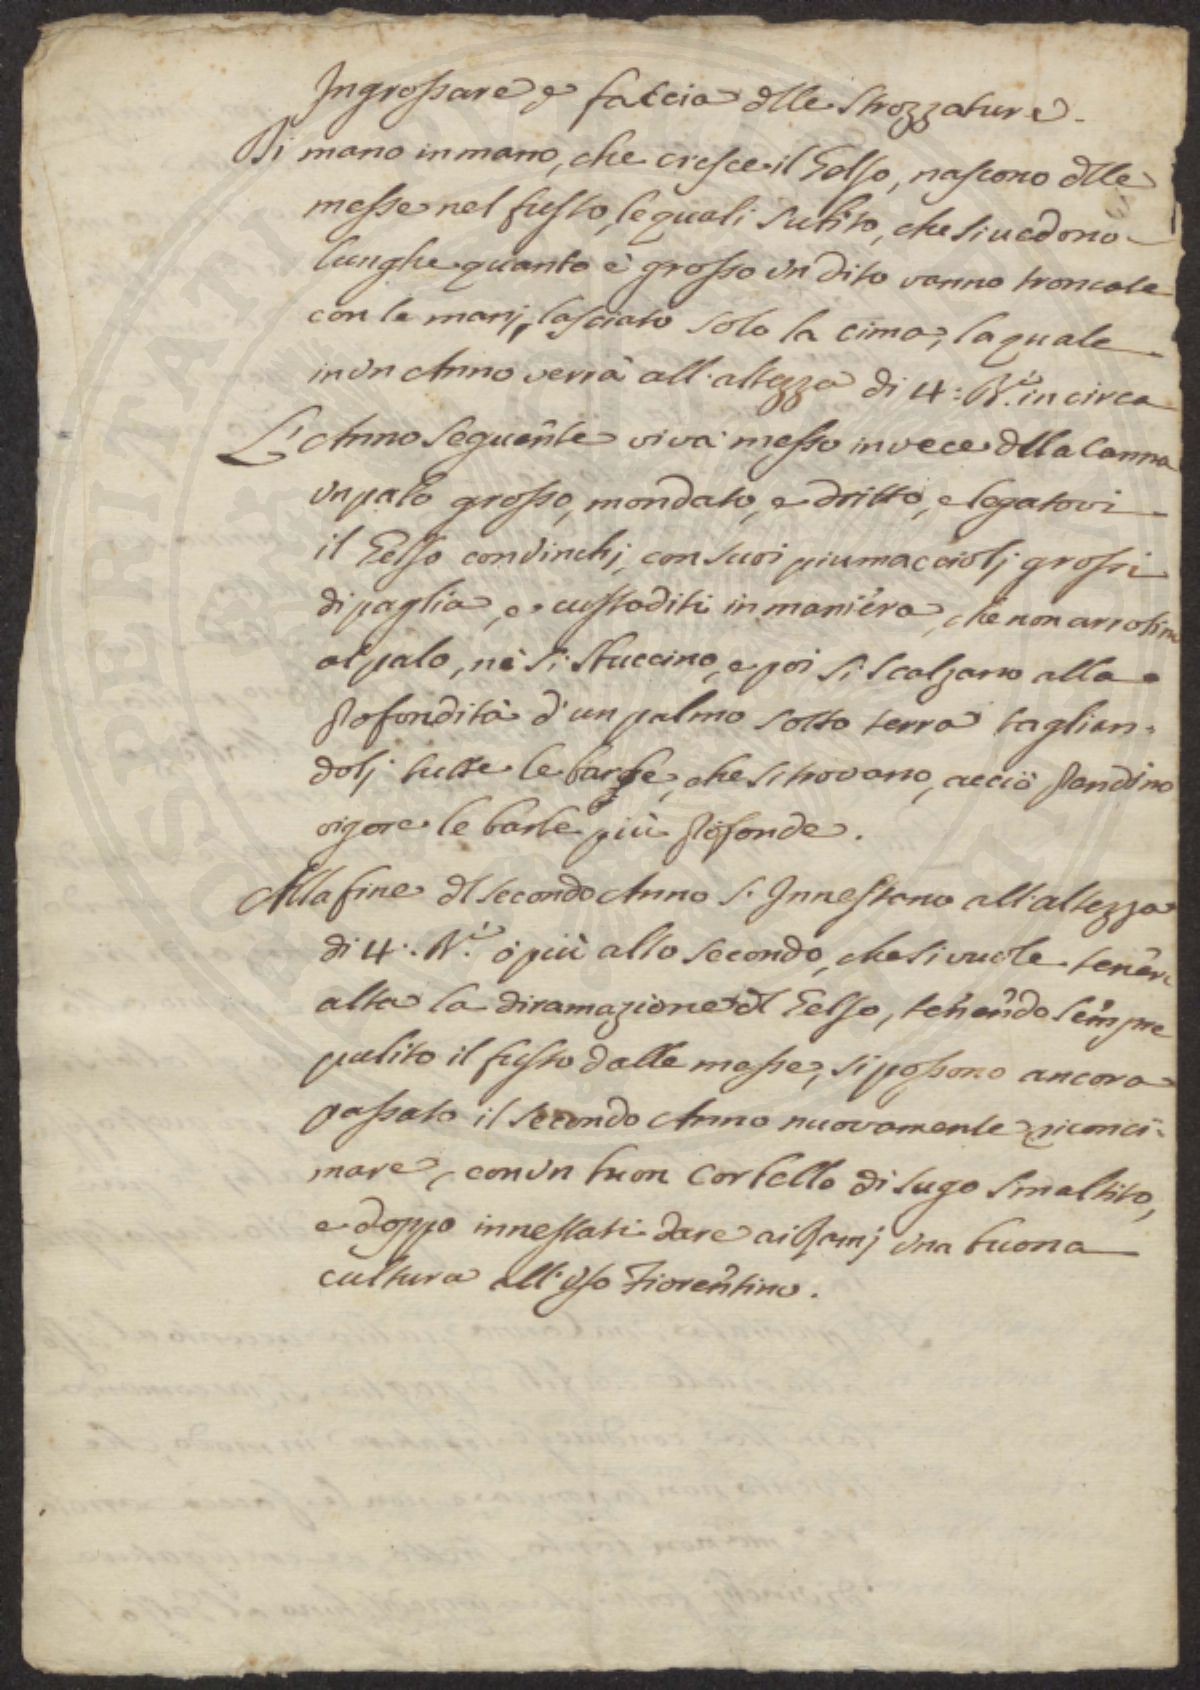 Ingrossare e faccia dlle strozzature.
Di mano in mano, che cresce il Gelso, nascono dlle
messe nel fusto, le quali subito, che si uedono
lunghe quanto è grosso un dito vanno troncate
con le manj, lasciato solo la cima, la quale
in un Anno verrà all'altezza di 4: Bra in circa
L'Anno seguente vi và messo in vece dlla Canna
un palo grosso, mondato, e dritto, e legatovi
il Gelso con Vinchj, con suoi piumacciolj grossi
di paglia, e custoditi in maniera, che non arrotino
al palo, nè si stuccino, e poi si scalzano alla
profondità d'un palmo sotto terra taglian-
dolj tutte le barbe, che si trovano, acciò prendino
vigore le barbe più profonde.
Alla fine dl secondo Anno s'Innestano all'altezza
di 4: Bra ò più alto secondo, che si vuole tenere
alta la diramazione dl Gelso, tenendo sempre
pulito il fusto dalle messe, si possono ancora
passato il secondo Anno nuovamente riconci-
mare, con un buon Cortello di sugo smaltito,
e doppo innestati dare ai Ramj una buona
cultura all'uso Fiorentino.